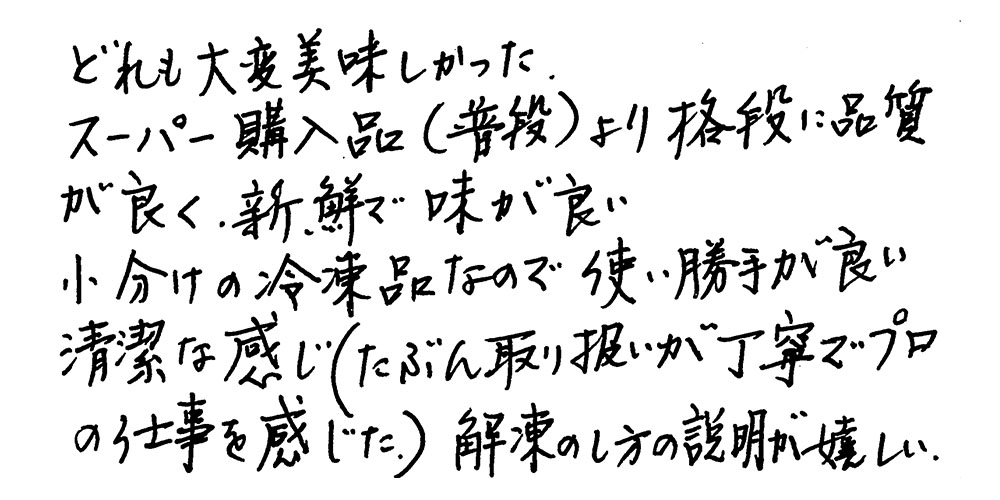 どれも大変美味しかった.
スーパー購入品(普段)より格段に品質
が良く.新鮮で味が良い
小分けの冷凍品なので使い勝手が良い
清潔な感じ(たぶん取り扱いが丁寧でプロ
の仕事を感じた.)解凍のし方の説明が嬉しい.